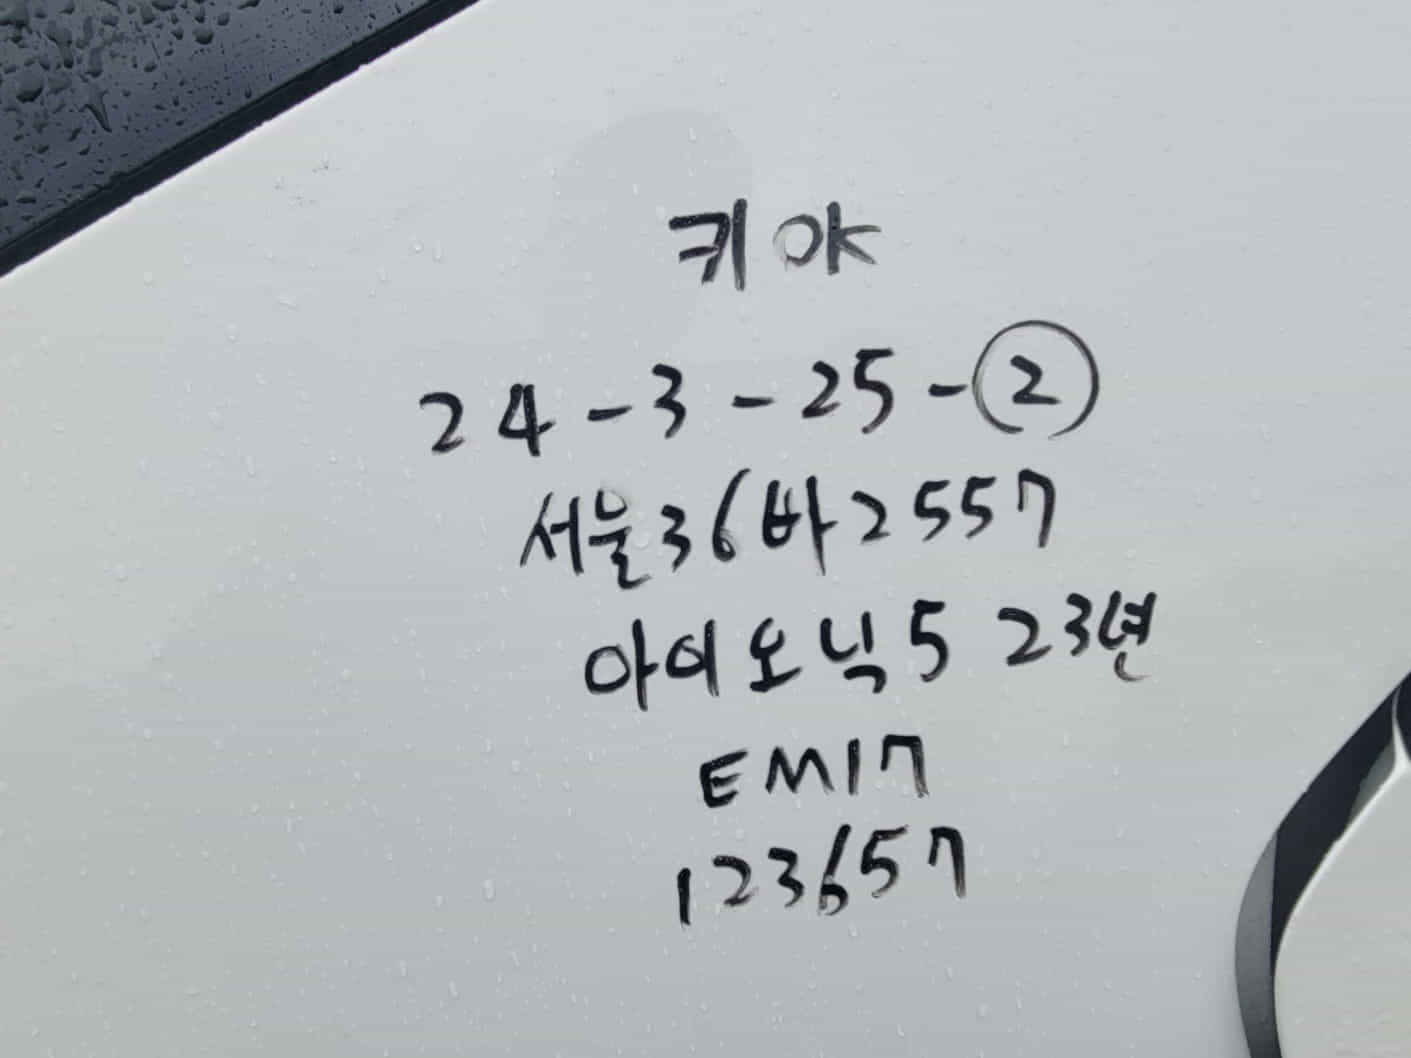 키 OK
24-3-25-②
서울36바2557
아이오닉5 23년
EM17
123657